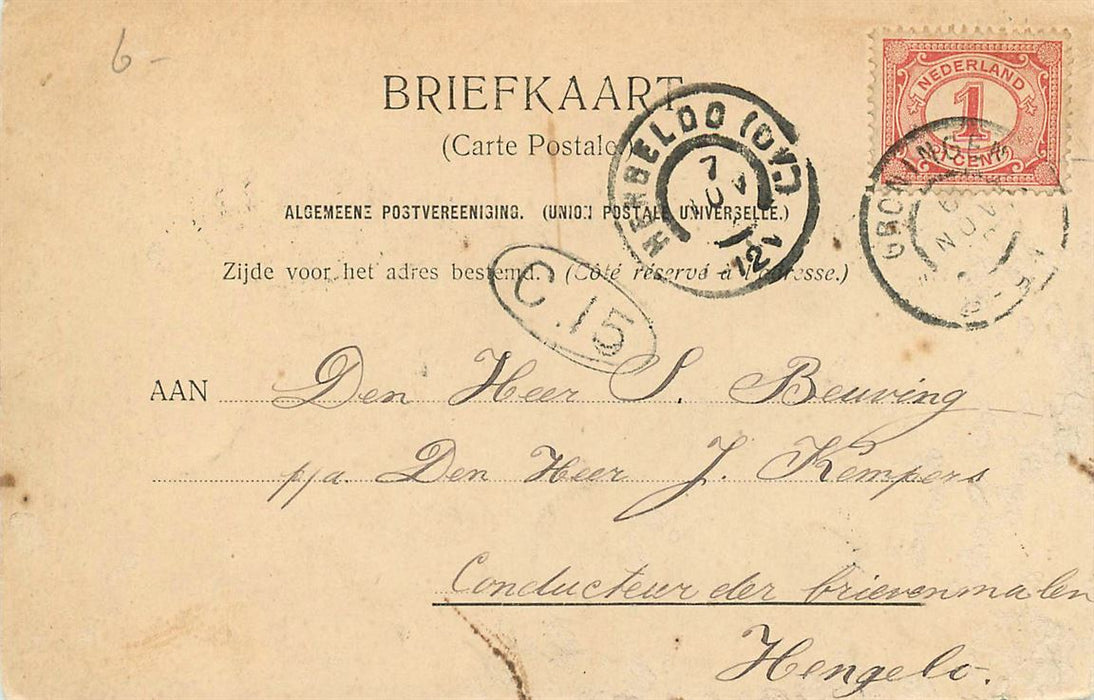 6-
BRIEFKAART
(Carte Postale)
NEDERLAND
1
CENT
HENGELOO (OV:)
7 NOV
12-1
GRONINGEN
6 NOV
ALGEMEENE POSTVEREENIGING. (UNION POSTALE UNIVERSELLE.)
Zijde voor het adres bestemd. (Côté réservé à l'adresse.)
C. 15
AAN Den Heer S. Beuving
p/a. Den Heer J. Kempers
Conducteur der brievenmalen
Hengelo.